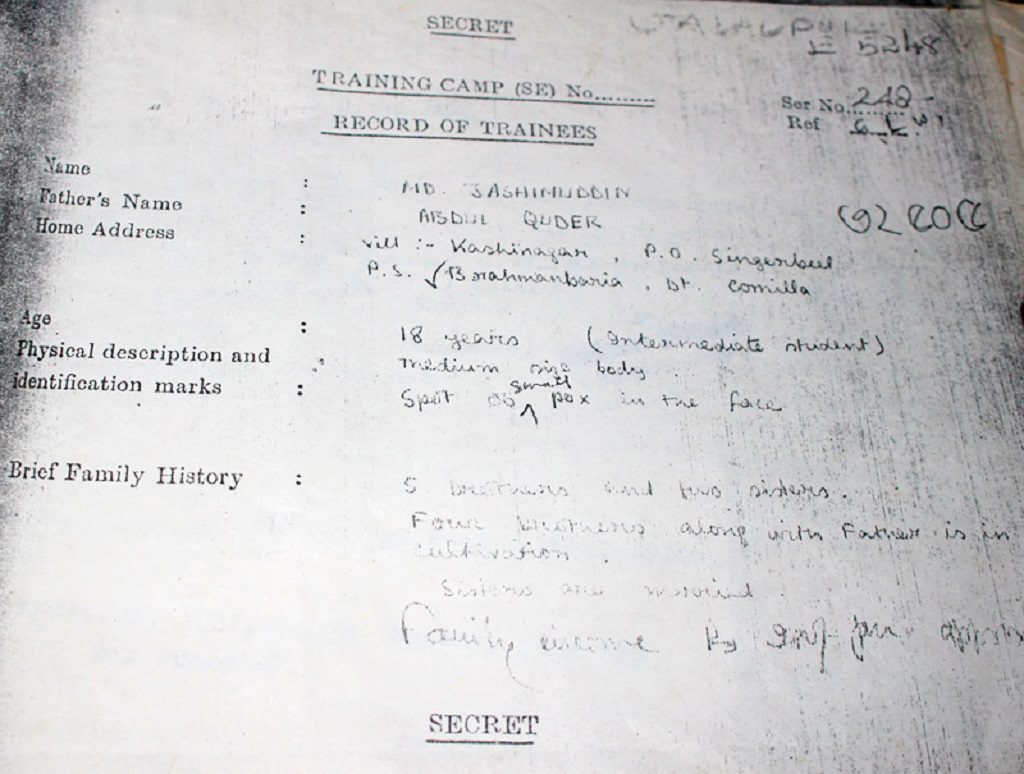 SECRET
E 5248
TRAINING CAMP (SE) No.........
Ser No..248-
RECORD OF TRAINEES
Ref
Name : MD. JASHIMUDDIN
Father's Name : ABDUL QUDER
Home Address : vill :- Kashinagar, P.O. Singerbeel
P.S. Brahmanbaria, Dt. Comilla
Age : 18 years (Intermediate student)
Physical description and medium size body
identification marks : Spot of small pox in the face
Brief Family History : 5 brothers and two sisters.
Four brothers along with Father is in
cultivation.
Sisters are married
Family income Rs
SECRET